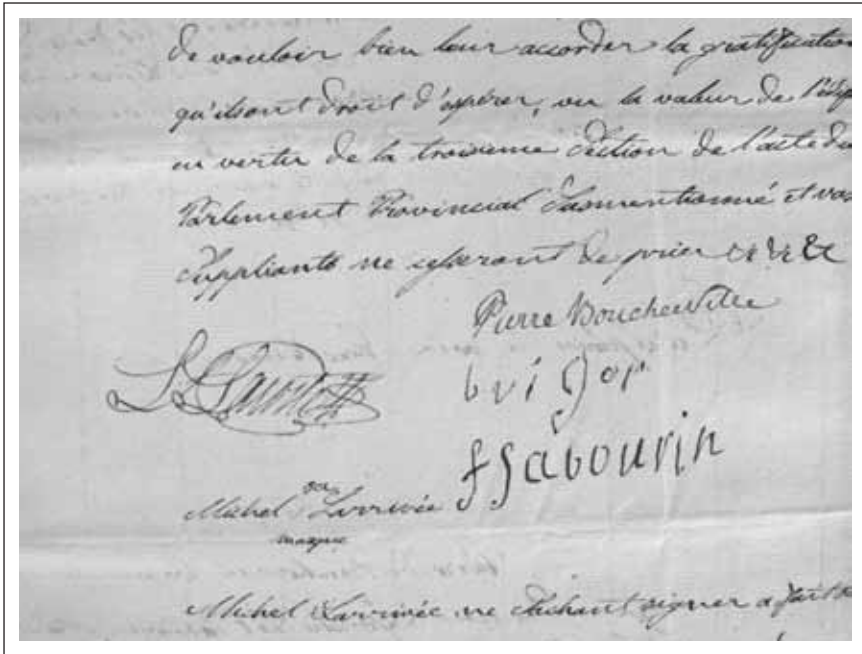 de vouloir bien leur accorder la gratification
qu'ils ont droit d'espérer, ou la valeur de
en vertu de la troisieme Section de l'acte du
Parlement Provincial Susmentionné et vos
Suppliants ne cesseront de prier &c &c &c
Pierre Boucherville
L
f Sabourin
Michel Larrivée
sa
marque
Michel Larrivée ne Sachant signer a fait